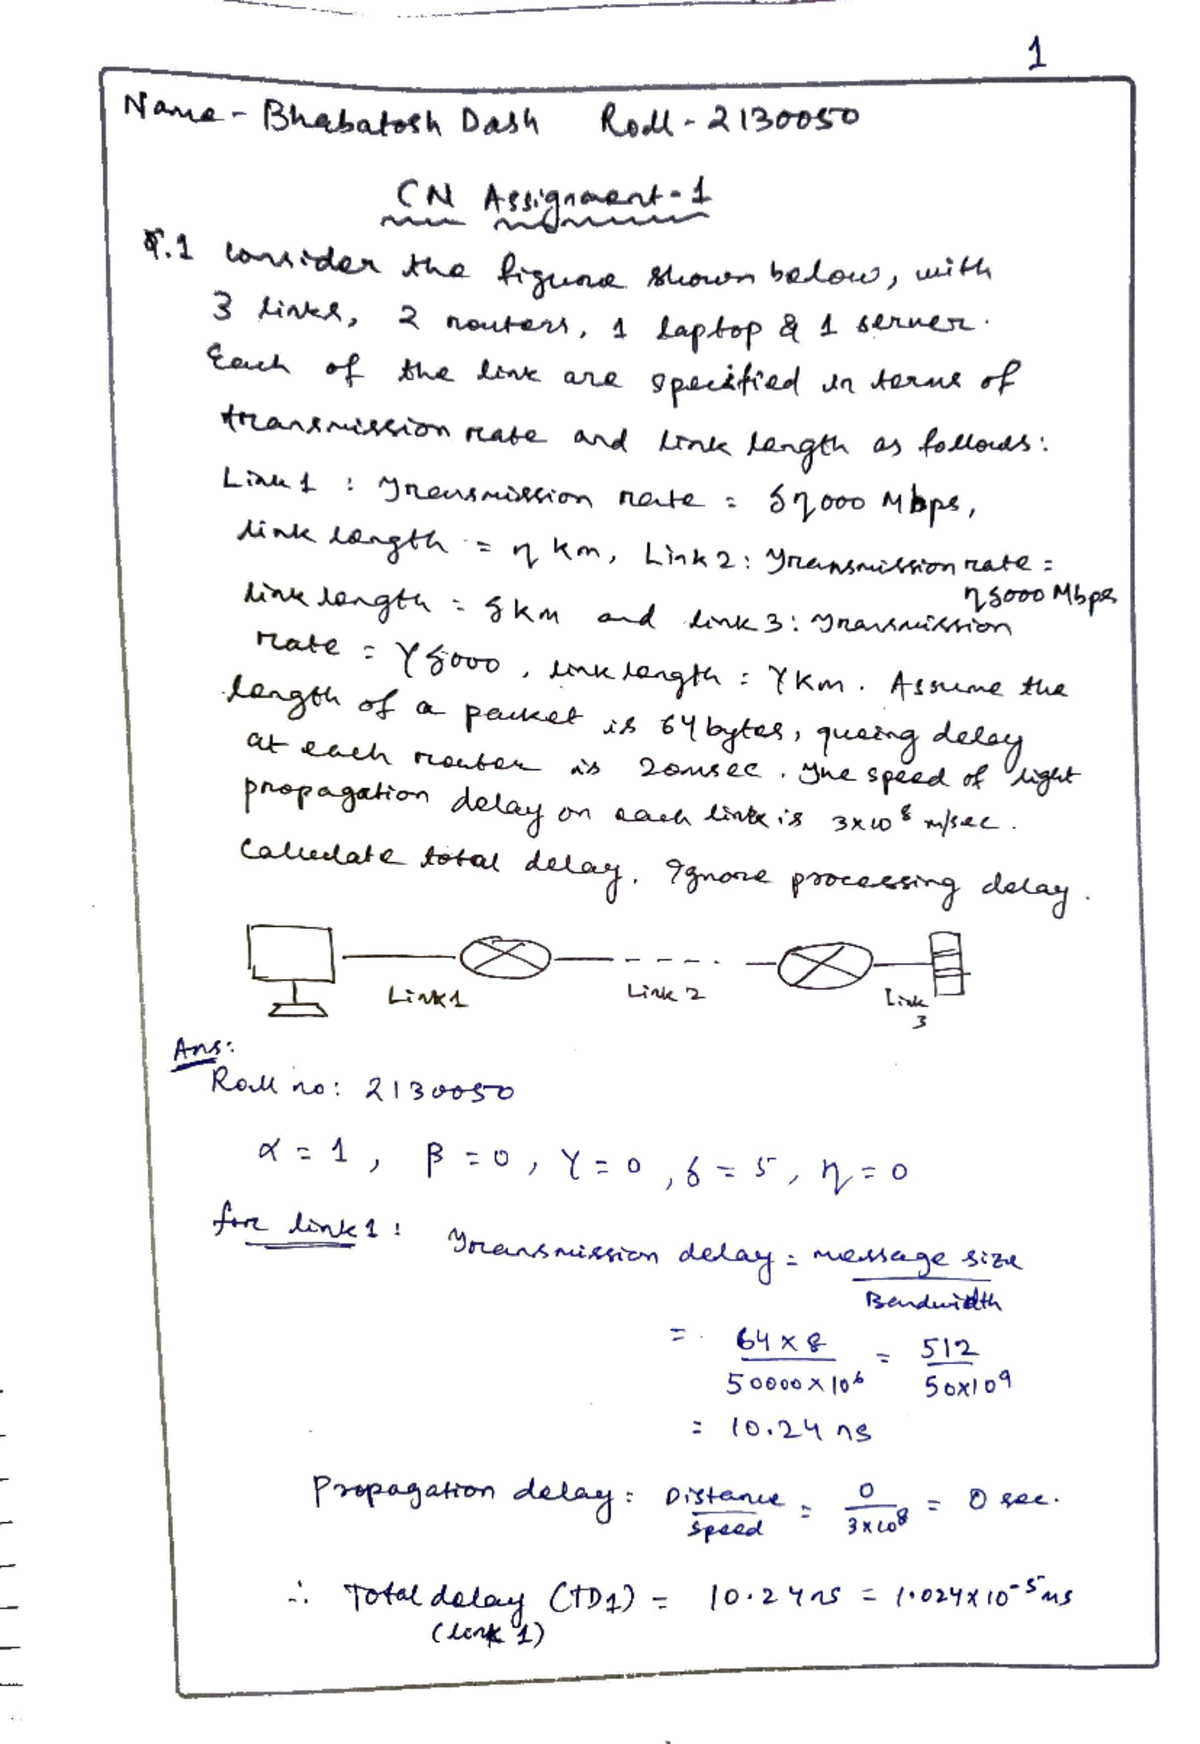 1
Name - Bhabatosh Dash Roll - 2130050
CN Assignment - 1
Q.1 Consider the figure shown below, with
3 links, 2 routers, 1 laptop & 1 server.
Each of the link are specified in terms of
transmission rate and link length as follows:
Link 1 : Transmission rate = δη000 Mbps,
link length = η Km, Link 2 : Transmission rate =
ηδ000 Mbps
link length = δ km and link 3 : Transmission
rate = γδ000, link length = γ Km. Assume the
length of a packet is 64 bytes, queing delay
at each router is 20msec. The speed of light
propagation delay on each link is 3×10⁸ m/sec.
Calculate total delay. Ignore processing delay.
Link 1 Link 2 Link 3
Ans:
Roll no: 2130050
α = 1, β = 0, γ = 0, δ = 5, η = 0
for link 1 : Transmission delay = message size / Bandwidth
= 64 × 8 / 50000 × 10⁶ = 512 / 50×10⁹
= 10.24 ns
Propagation delay = Distance / speed = 0 / 3×10⁸ = 0 sec.
∴ Total delay (TD1) = 10.24 ns = 1.024×10⁻⁵ ms
(link 1)